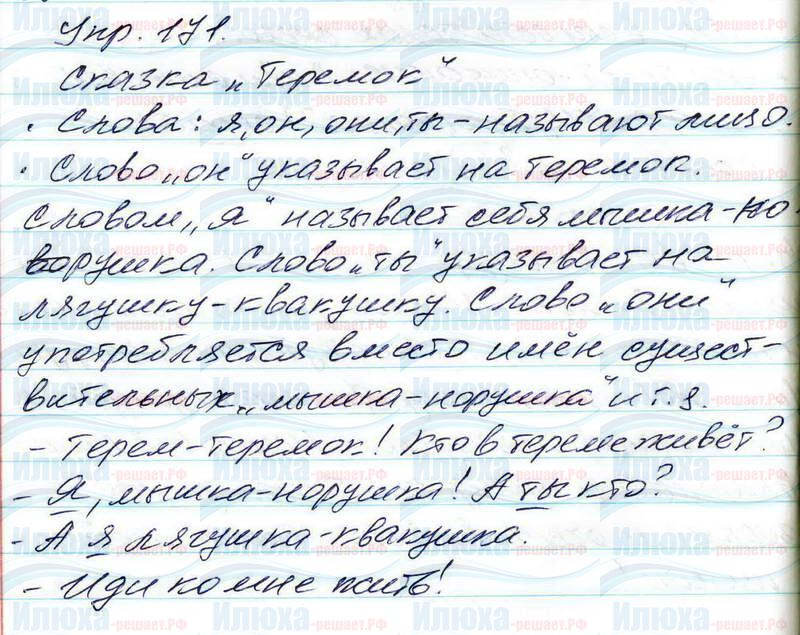 Упр. 171.
Сказка „Теремок“
· Слова: я, он, они, ты – называют лицо.
· Слово „он“ указывает на теремок.
Словом „я“ называет себя мышка-но-
рушка. Слово „ты“ указывает на
лягушку-квакушку. Слово „они“
употребляется вместо имён сущест-
вительных „мышка-норушка“ и т.д.
– Терем-теремок! Кто в тереме живёт?
– Я, мышка-норушка! А ты кто?
– А я лягушка-квакушка.
– Иди ко мне жить!
Илюха-решает.РФ